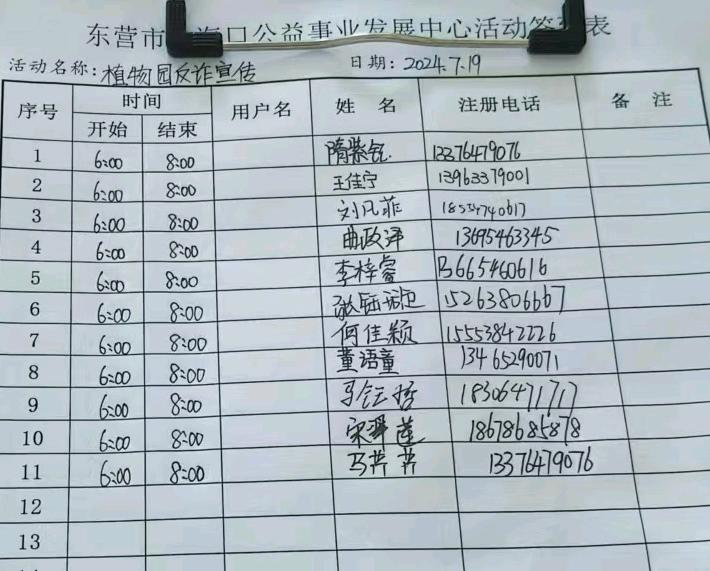 东营市 海口公益事业发展中心活动签到表
活动名称：植物园反诈宣传 日期：2024.7.19
序号 时间 用户名 姓 名 注册电话 备 注
开始 结束
1 6:00 8:00 隋紫钰 13376479076
2 6:00 8:00 王佳宁 13963379001
3 6:00 8:00 刘凡菲 18554740617
4 6:00 8:00 曲政泽 13695463345
5 6:00 8:00 李梓睿 13665460616
6 6:00 8:00 张 15263806667
7 6:00 8:00 何佳颖 15553842226
8 6:00 8:00 董语童 13465290071
9 6:00 8:00 马 18306471717
10 6:00 8:00 宋 莲 18678685878
11 6:00 8:00 马芹芹 13376479076
12
13